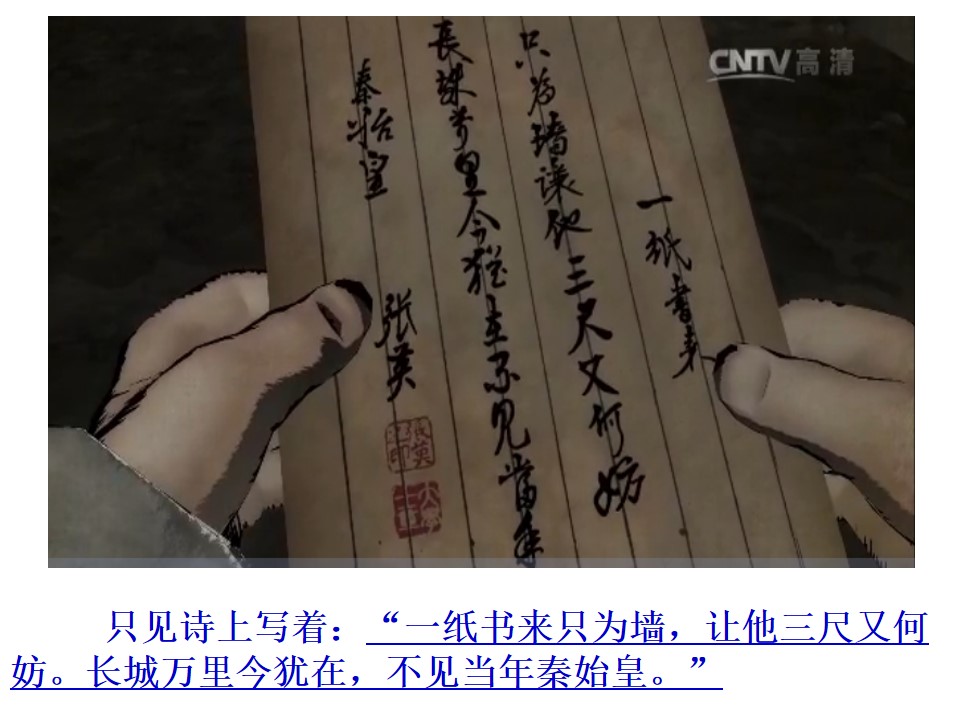 CNTV高清
一紙書来
只為墻讓他三尺又何妨
長城萬里今猶在不见當年
秦始皇
张英
只见诗上写着:“一纸书来只为墙，让他三尺又何
妨。长城万里今犹在，不见当年秦始皇。”